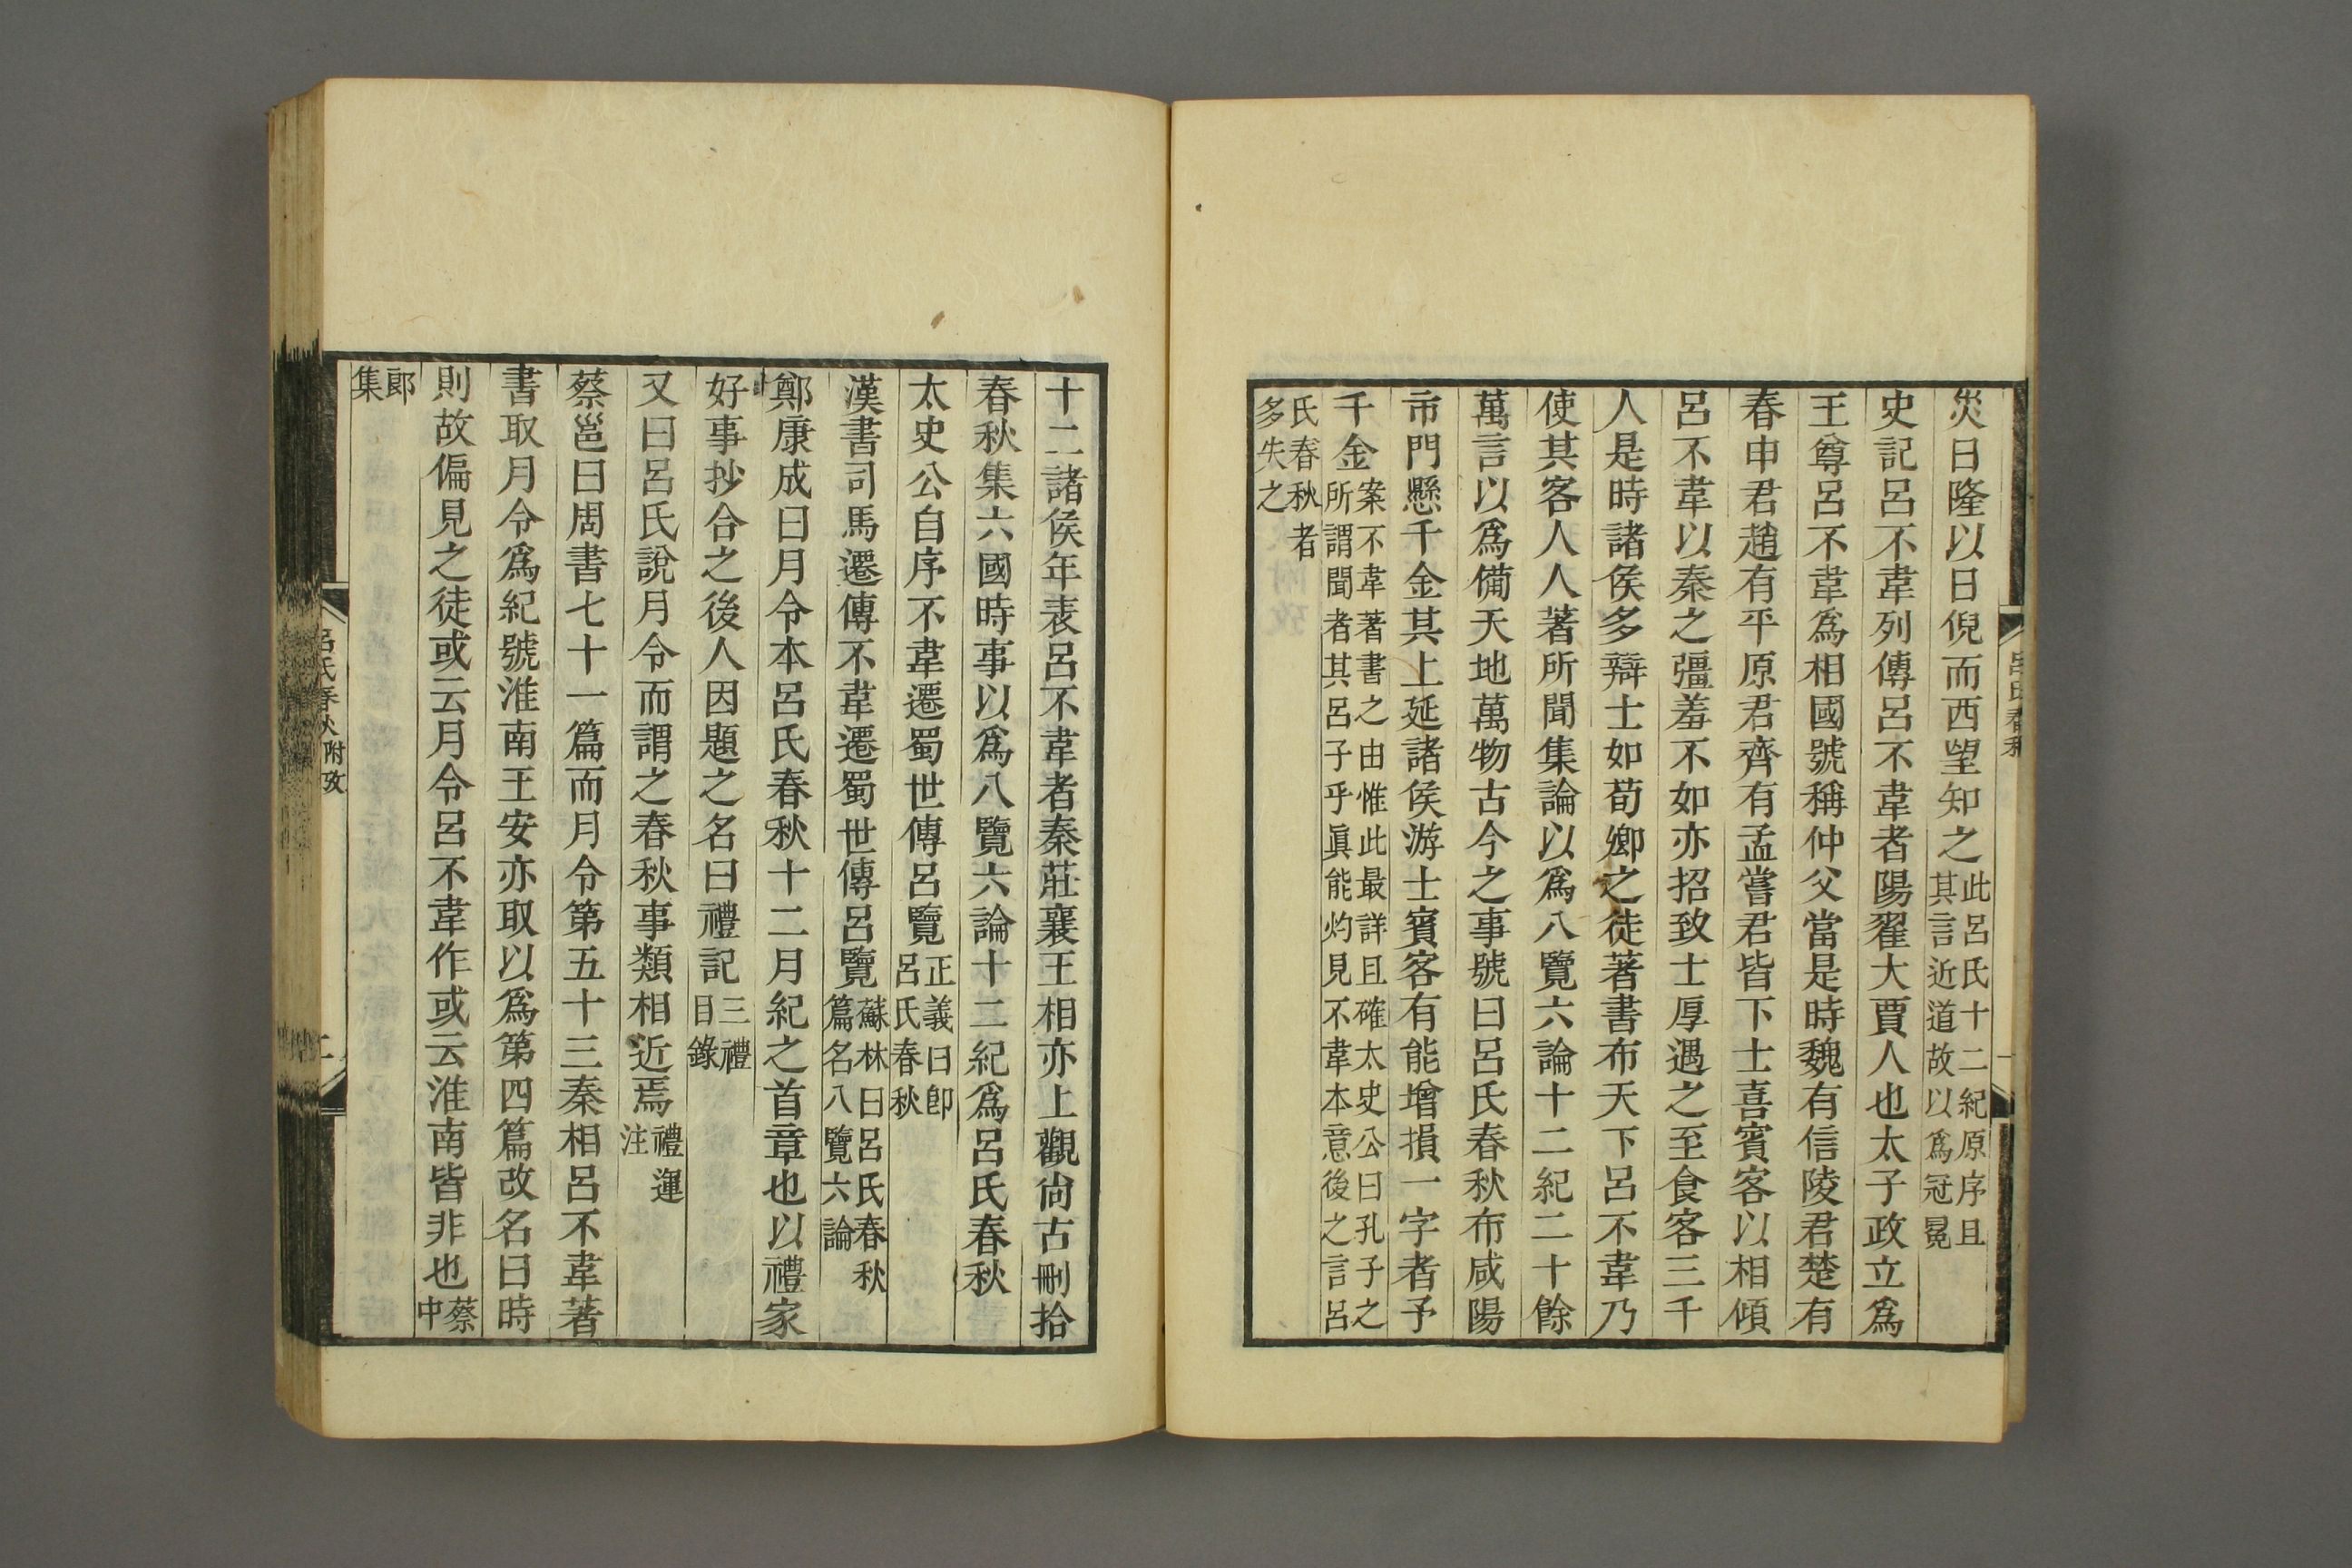 呂氏春秋
一
災日隆以日倪而西望知之此呂氏十二紀原序且其言近道故以爲冠冕
史記呂不韋列傳呂不韋者陽翟大賈人也太子政立爲
王尊呂不韋爲相國號稱仲父當是時魏有信陵君楚有
春申君趙有平原君齊有孟嘗君皆下士喜賓客以相傾
呂不韋以秦之彊羞不如亦招致士厚遇之至食客三千
人是時諸侯多辯士如荀卿之徒著書布天下呂不韋乃
使其客人人著所聞集論以爲八覽六論十二紀二十餘
萬言以爲備天地萬物古今之事號曰呂氏春秋布咸陽
市門懸千金其上延諸侯游士賓客有能增損一字者予
千金案不韋著書之由惟此最詳且確太史公曰孔子之所謂聞者其呂子乎眞能灼見不韋本意後之言呂
氏春秋者多失之
十二諸侯年表呂不韋者秦莊襄王相亦上觀尙古刪拾
春秋集六國時事以爲八覽六論十二紀爲呂氏春秋
太史公自序不韋遷蜀世傳呂覽正義曰卽呂氏春秋
漢書司馬遷傳不韋遷蜀世傳呂覽蘇林曰呂氏春秋篇名八覽六論
鄭康成曰月令本呂氏春秋十二月紀之首章也以禮家
好事抄合之後人因題之名曰禮記三禮目錄
又曰呂氏說月令而謂之春秋事類相近焉禮運注
蔡邕曰周書七十一篇而月令第五十三秦相呂不韋著
書取月令爲紀號淮南王安亦取以爲第四篇改名曰時
則故偏見之徒或云月令呂不韋作或云淮南皆非也蔡中
郎集
呂氏春秋附攷
二